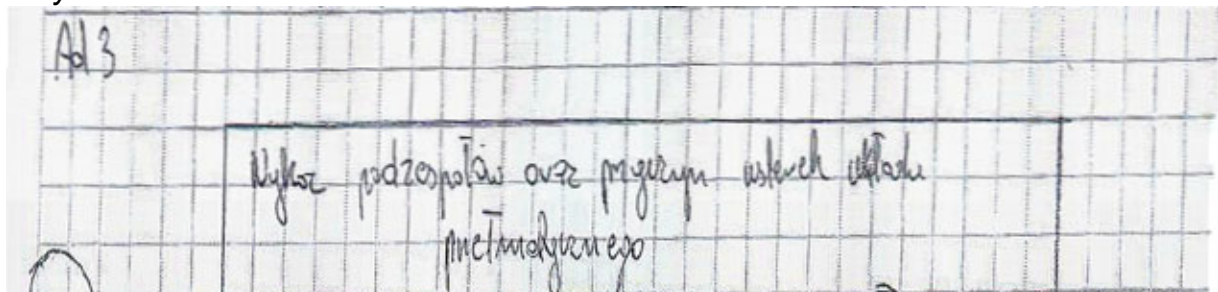 Ad 3
Wykaz podzespołów oraz przyczyn usterek układu
pnełmatycznego